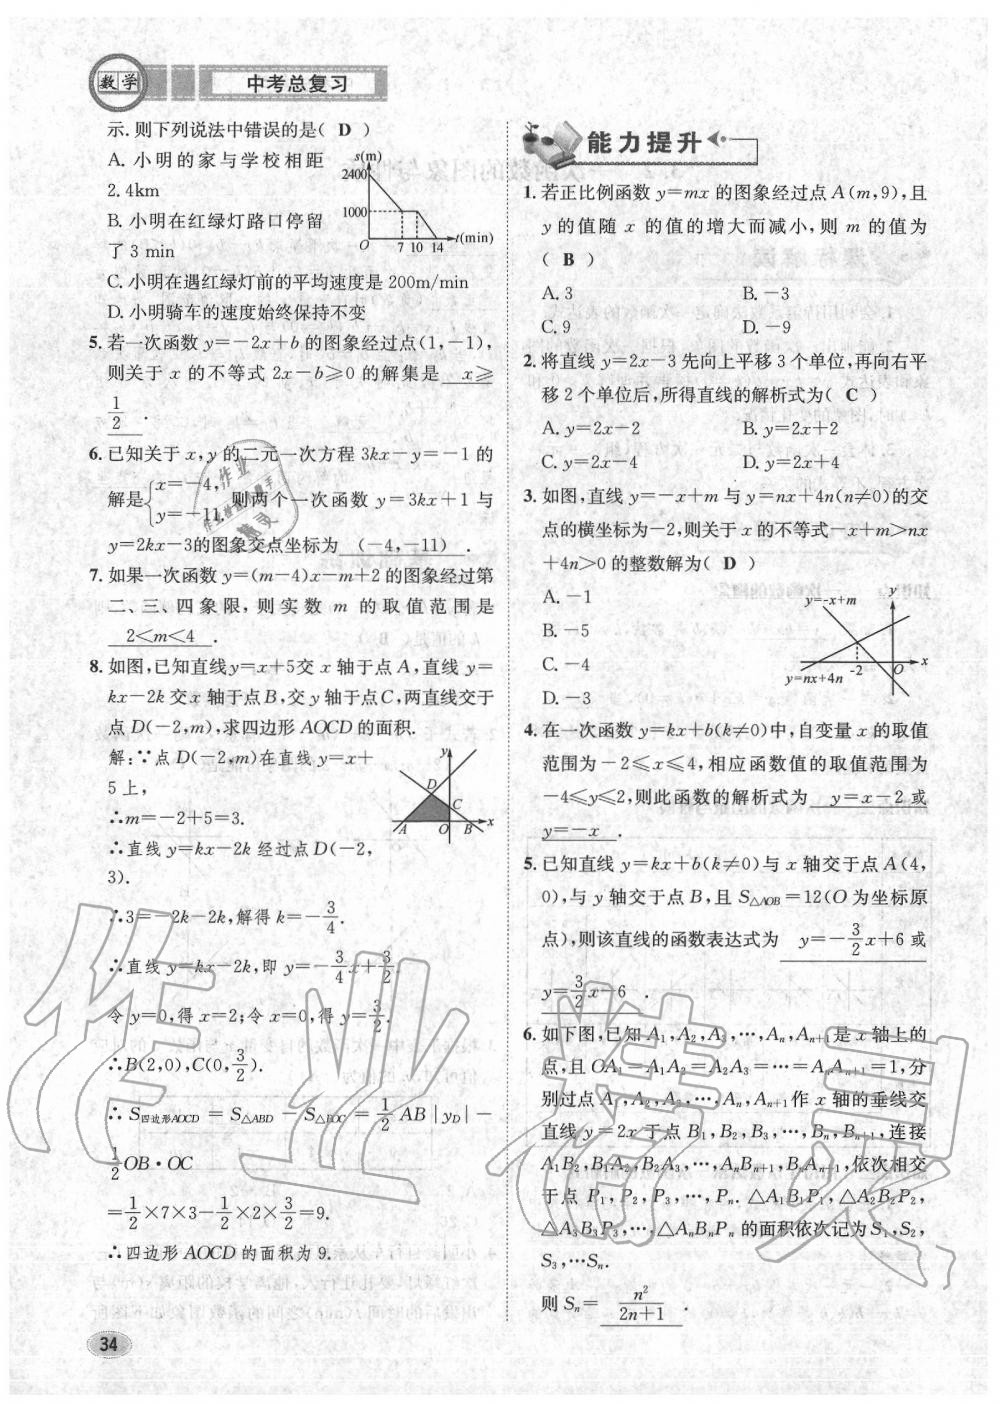 数学 中考总复习
示.则下列说法中错误的是( D )
A. 小明的家与学校相距
2.4km
B. 小明在红绿灯路口停留
了 3 min
s(m)
2400
1000
O 7 10 14 t(min)
C. 小明在遇红绿灯前的平均速度是 200m/min
D. 小明骑车的速度始终保持不变
5. 若一次函数 y=-2x+b 的图象经过点(1,-1),
则关于 x 的不等式 2x-b≥0 的解集是 x≥
1/2 .
6. 已知关于 x,y 的二元一次方程 3kx-y=-1 的
解是{x=-4, y=-11. 则两个一次函数 y=3kx+1 与
y=2kx-3的图象交点坐标为 (-4,-11) .
7. 如果一次函数 y=(m-4)x-m+2 的图象经过第
二、三、四象限,则实数 m 的取值范围是
2<m<4 .
8. 如图,已知直线y=x+5交 x 轴于点 A,直线 y=
kx-2k 交 x 轴于点B,交 y 轴于点C,两直线交于
点 D(-2,m),求四边形 AOCD 的面积.
解:∵点 D(-2,m)在直线 y=x+
5 上,
∴m=-2+5=3.
∴直线 y=kx-2k 经过点 D(-2,
3).
y
D
C
A O B x
∴3=-2k-2k,解得 k=-3/4.
∴直线 y=kx-2k,即 y=-3/4x+3/2.
令 y=0,得 x=2;令 x=0,得 y=3/2.
∴B(2,0),C(0,3/2).
∴ S四边形AOCD = S△ABD - S△BOC = 1/2 AB|yD|-
1/2 OB·OC
=1/2×7×3-1/2×2×3/2=9.
∴四边形 AOCD 的面积为 9.
34
能力提升
1. 若正比例函数 y=mx 的图象经过点 A(m,9),且
y 的值随 x 的值的增大而减小,则 m 的值为
( B )
A. 3 B. -3
C. 9 D. -9
2. 将直线 y=2x-3 先向上平移 3 个单位,再向右平
移 2 个单位后,所得直线的解析式为( C )
A. y=2x-2 B. y=2x+2
C. y=2x-4 D. y=2x+4
3. 如图,直线 y=-x+m 与 y=nx+4n(n≠0)的交
点的横坐标为-2,则关于 x 的不等式-x+m>nx
+4n>0 的整数解为( D )
A. -1
B. -5
C. -4
D. -3
y=-x+m y
-2 O x
y=nx+4n
4. 在一次函数 y=kx+b(k≠0)中,自变量 x 的取值
范围为-2≤x≤4,相应函数值的取值范围为
-4≤y≤2,则此函数的解析式为 y=x-2 或
y=-x .
5. 已知直线 y=kx+b(k≠0)与 x 轴交于点 A(4,
0),与 y 轴交于点 B,且 S△AOB=12(O 为坐标原
点),则该直线的函数表达式为 y=-3/2x+6 或
y=3/2x-6 .
6. 如下图,已知 A1,A2,A3,…,An,An+1是 x 轴上的
点,且 OA1=A1A2=A2A3=…=AnAn+1=1,分
别过点 A1,A2,A3,…,An,An+1作 x 轴的垂线交
直线 y=2x 于点 B1,B2,B3,…,Bn,Bn+1,连接
A1B2,B1A2,B2A3,…,AnBn+1,BnAn+1,依次相交
于点 P1,P2,P3,…,Pn. △A1B1P1,△A2B2P2,
△A3B3P3,…,△AnBnPn 的面积依次记为S1,S2,
S3,…Sn.
则 Sn= n²/2n+1 .
作业精灵